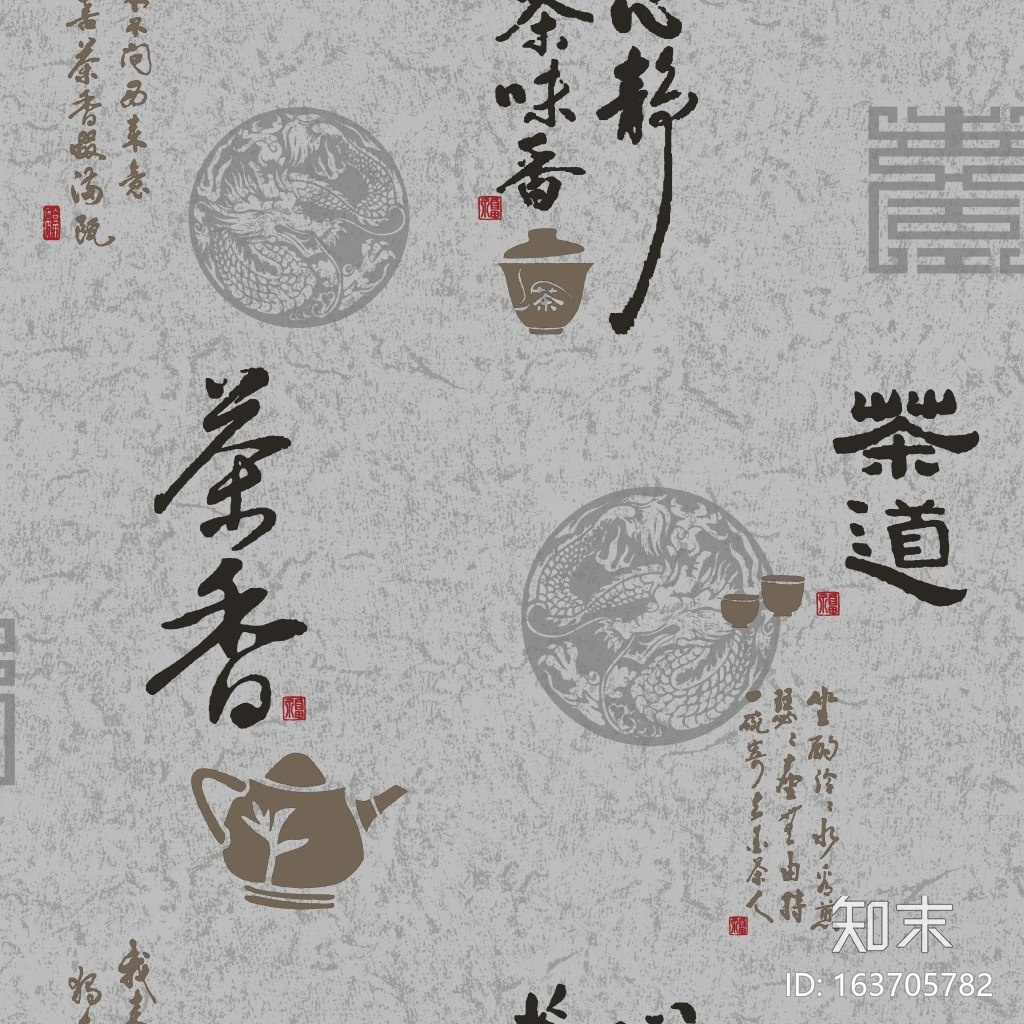 不问西来意
茶香
心静
茶味香
茶
茶香
茶道
坐酌泠泠水看煎
瑟瑟塵無由持
一碗寄与爱茶人
我
知末
ID: 163705782